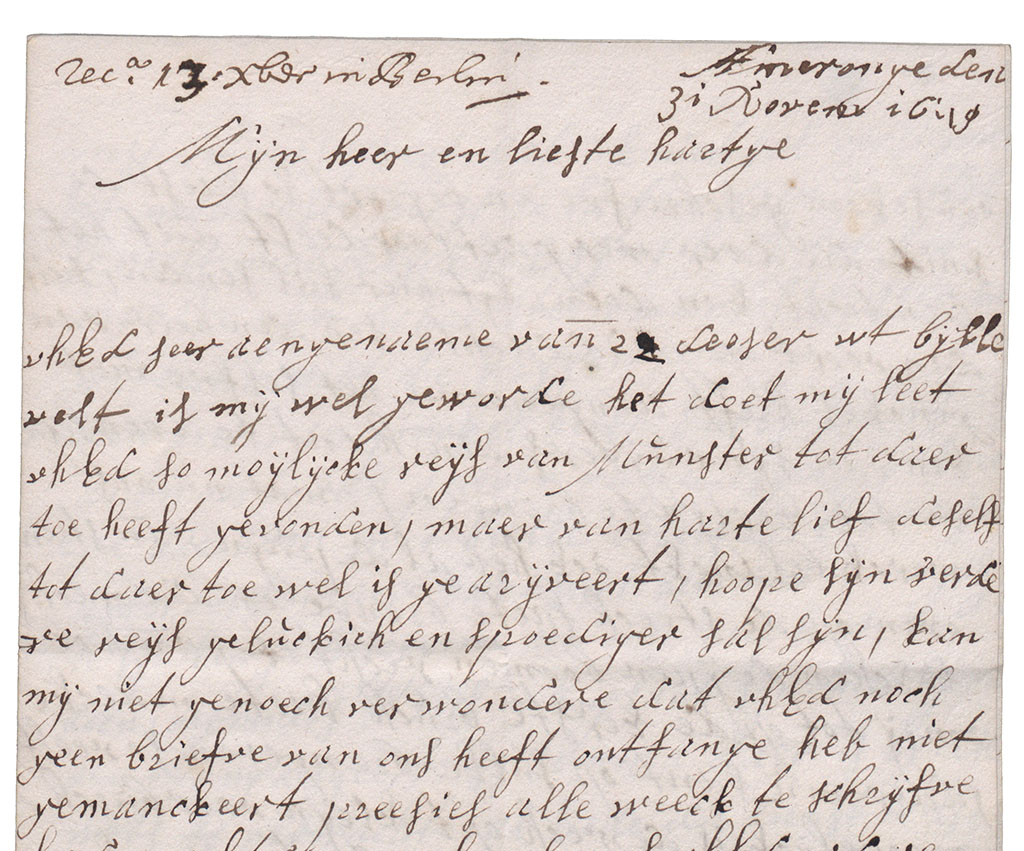 reca 13 xber in Berlin.
Ameronge den
31 Novem 1679
Mijn heer en liefste hartge
uhEd seer aengenaeme van 24 deeser ut bijlle
velt is mij wel geworde het doet mij leet
uhEd so moijlijcke reijs van Munster tot daer
toe heeft gevonden, maer van harte lief deself
tot daer toe wel is gearijveert, hoope sijn verde
re reijs geluckich en spoediger sal sijn, kan
mij niet genoech verwondere dat uhEd noch
geen briefve van ons heeft ontfange heb niet
gemanckeert preesies alle weeck te schrijfve